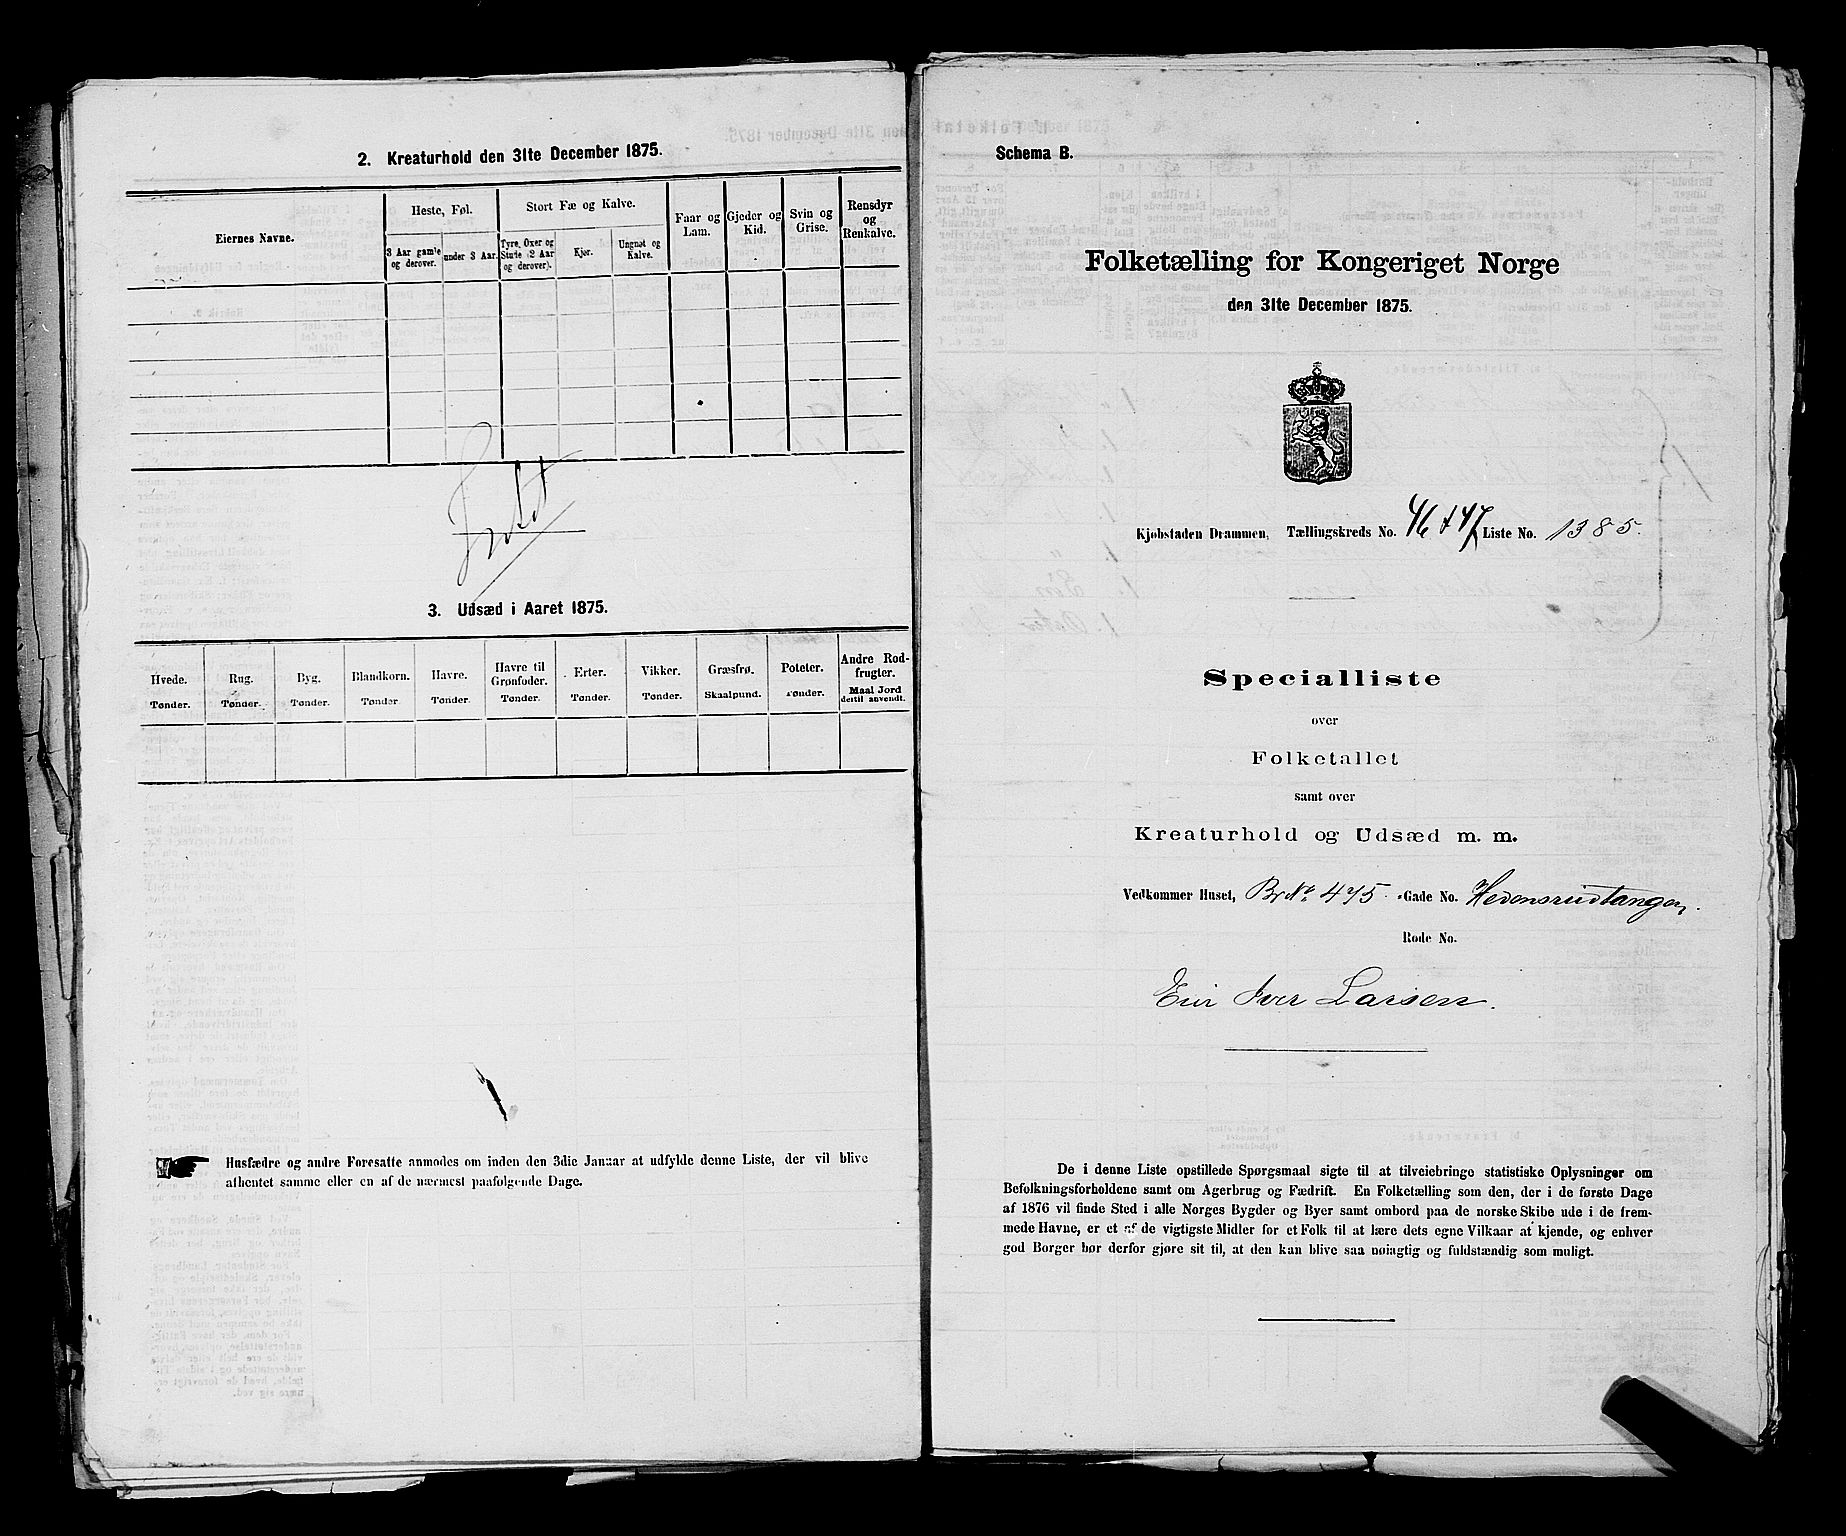 2. Kreaturhold den 31te December 1875.
Eiernes Navne.
Heste, Føl.
3 Aar gamle og derover.
under 3 Aar.
Stort Fæ og Kalve.
Tyre, Oxer og Stude (2 Aar og derover).
Kjør.
Ungnøt og Kalve.
Faar og Lam.
Gjeder og Kid.
Svin og Grise.
Rensdyr og Renkalve.
3. Udsæd i Aaret 1875.
Hvede. Tønder.
Rug. Tønder.
Byg. Tønder.
Blandkorn. Tønder
Havre. Tønder.
Havre til Grønfoder. Tønder.
Erter. Tønder.
Vikker. Tønder.
Græsfrø. Skaalpund.
Poteter. Tønder.
Andre Rodfrugter. Maal Jord dertil anvendt.
Husfædre og andre Foresatte anmodes om inden den 3die Januar at udfylde denne Liste, der vil blive
afhentet samme eller en af de nærmest paafølgende Dage.
Schema B.
Folketælling for Kongeriget Norge
den 31te December 1875.
Kjøbstaden Drammen, Tællingskreds No. 46 + 47 Liste No. 1385.
Specialliste
over
Folketallet
samt over
Kreaturhold og Udsæd m. m.
Vedkommer Huset, Br No 475. -Gade No. Hedensrudtangen.
Rode No.
Eier Iver Larsen.
De i denne Liste opstillede Spørgsmaal sigte til at tilveiebringe statistiske Oplysninger om
Befolkningsforholdene samt om Agerbrug og Fædrift. En Folketælling som den, der i de første Dage
af 1876 vil finde Sted i alle Norges Bygder og Byer samt ombord paa de norske Skibe ude i de frem-
mede Havne, er et af de vigtigste Midler for et Folk til at lære dets egne Vilkaar at kjende, og enhver
god Borger bør derfor gjøre sit til, at den kan blive saa nøiagtig og fuldstændig som muligt.